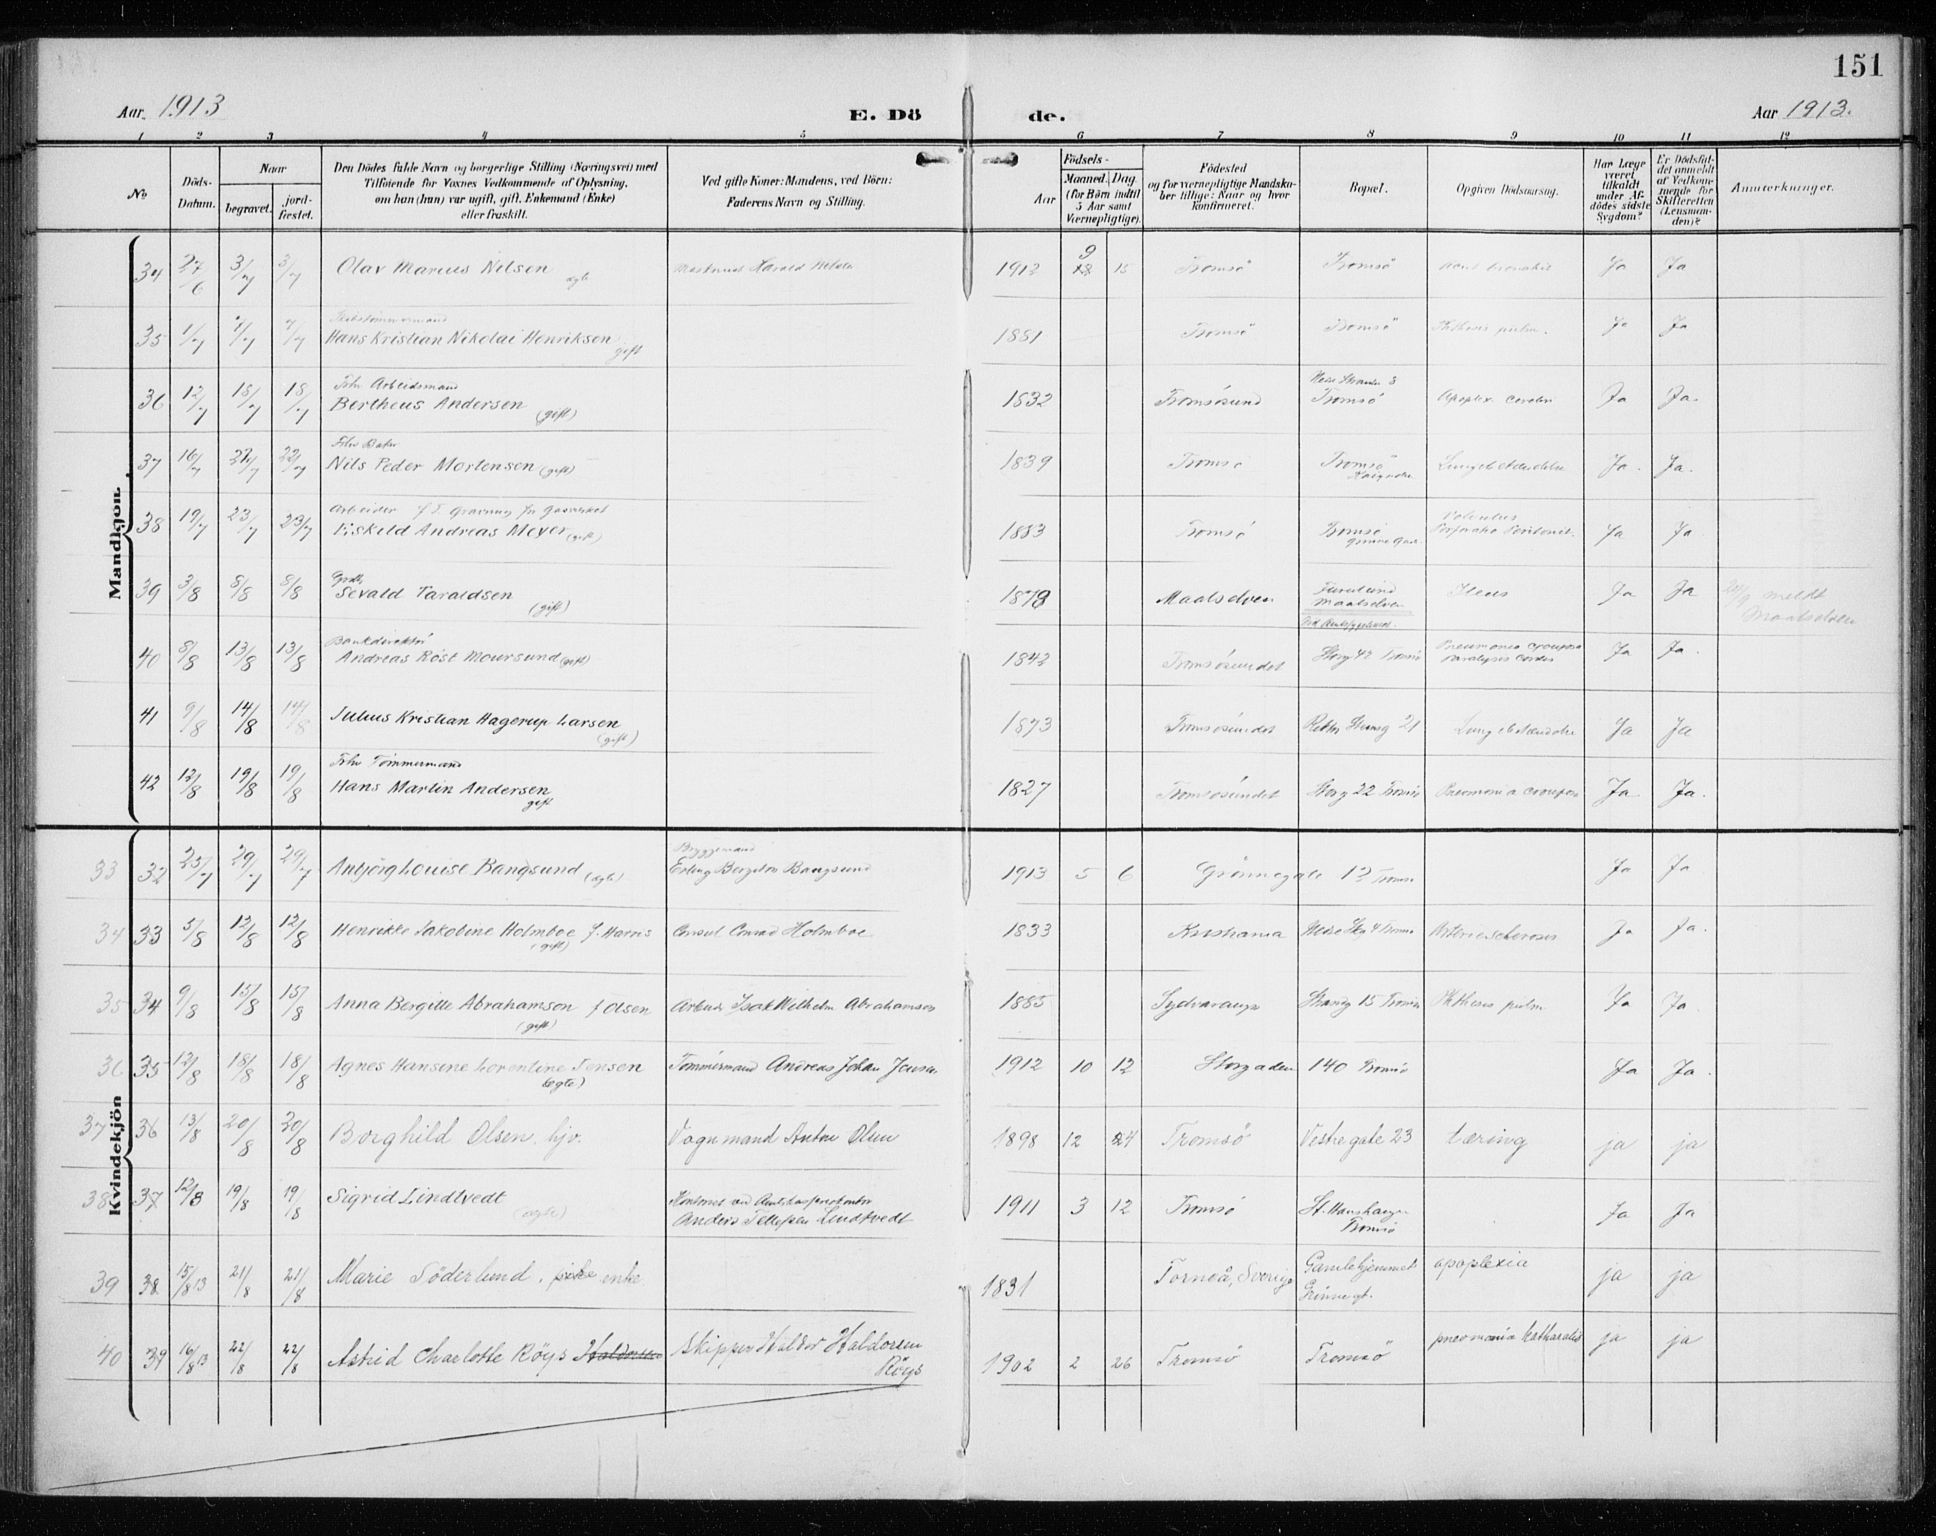 151
Aar 1913 E. Dö de. Aar 1913.
1 2 3 4 5 6 7 8 9 10 11 12
No Döds-Datum. Naar begravet. jord-fæstet. Den Dödes fulde Navn og borgerlige Stilling (Næringsvei) med Tilföiende for Voxnes Vedkommende af Oplysning, om han (hun) var ugift, gift, Enkemand (Enke) eller fraskilt. Ved gifte Koner: Mandens, ved Börn: Faderens Navn og Stilling. Födsels- Aar Maaned. Dag (for Börn indtil 5 Aar samt Værnepligtige). Födested og for værnepligtige Mandskaber tillige: Naar og hvor konfirmeret. Bopæl. Opgiven Dödsaarsag. Har Læge været tilkaldt under Afdödes sidste Sygdom? Er Dödsfaldet anmeldt af Vedkommende for Skifteretten (Lensmanden)? Anmærkninger.
Mandkjön.
34 27/6 3/7 3/7 Olav Marius Nilsen ægte Harald Nilsen 1913 9 15 Tromsö Tromsö Ja Ja
35 1/7 7/7 7/7 Hans Kristian Nikolai Henriksen gift 1851 Tromsö Tromsö Phthisis pulm. Ja Ja
36 12/7 18/7 18/7 Fhv Arbeidsmand
Bertheus Andersen (gift) 1832 Tromsösund Tromsö Apoplex. cerebri Ja Ja.
37 16/7 22/7 22/7 Fhv
Nils Peder Mortensen (gift) 1839 Tromsö Tromsö Lungebetændelse Ja. Ja.
38 19/7 23/7 23/7 Arbeider
Eskild Andreas Meyer (gift) 1883 Tromsö Tromsö Ja Ja
39 3/8 8/8 8/8 Sevald Taraldsen (gift) 1878 Maalselven Maalselven Ileus Ja Ja meldt Maalselven
40 8/8 13/8 13/8 Bankdirektör
Andreas Röst Moursund (gift) 1843 Tromsösundet Storg 42 Tromsö Pneumonia crouposa paralysis cordis Ja Ja.
41 9/8 14/8 14/8 Julius Kristian Hagerup Larsen (gift) 1873 Tromsösundet 21 Lungebetændelse Ja Ja
42 12/8 19/8 19/8 Fhv Tömmermand
Hans Martin Andersen gift 1827 Tromsösundet Storg 22 Tromsö Pneumonia crouposa Ja Ja.
Kvindekjön
33 32 23/7 29/7 29/7 Anbjörg Louise Bangsund (ægte) Bryggemand Erling Bangsund 1913 5 6 Grönnegate 12 Tromsö Ja Ja
34 33 5/8 12/8 12/8 Henrikke Jakobine Holmboe f. Harris (gift) Consul Conrad Holmboe 1833 Kristiania Tromsö Arteriosclerosis Ja Ja.
35 34 9/8 15/8 15/8 Anna Bergitte Abrahamsen f Olsen (gift) Isak Wilhelm Abrahamsen 1885 Sydvaranger Strandg 15 Tromsö Phthisis pulm Ja Ja.
36 35 12/8 18/8 18/8 Agnes Hansine Lorentine Jensen ægte) Tömmermand Andreas Johan Jensen 1912 10 12 Storgaden 140 Tromsö Ja Ja.
37 36 13/8 20/8 20/8 Borghild Olsen. hjv. Vognmand Anton Olsen 1898 12 24 Tromsö Vestregate 23 tæring ja ja
38 37 12/8 19/8 19/8 Sigrid Lindtvedt (ægte) Anders Tellefsen Lindtvedt 1911 3 12 Tromsö St. Hanshaugen Tromsö Ja Ja
39 38. 15/8 13 21/8 21/8 Marie Söderlund, enke 1831 Torneå, Sverige Gamlehjemmet Grönnegt. apoplexia ja ja
40 39 16/8 13 22/8 22/8 Astrid Charlotte Röys Haldorsen Skipper Haldor Haldorsen Röys 1902 2 26 Tromsö Tromsö pneumonia katharalis ja ja